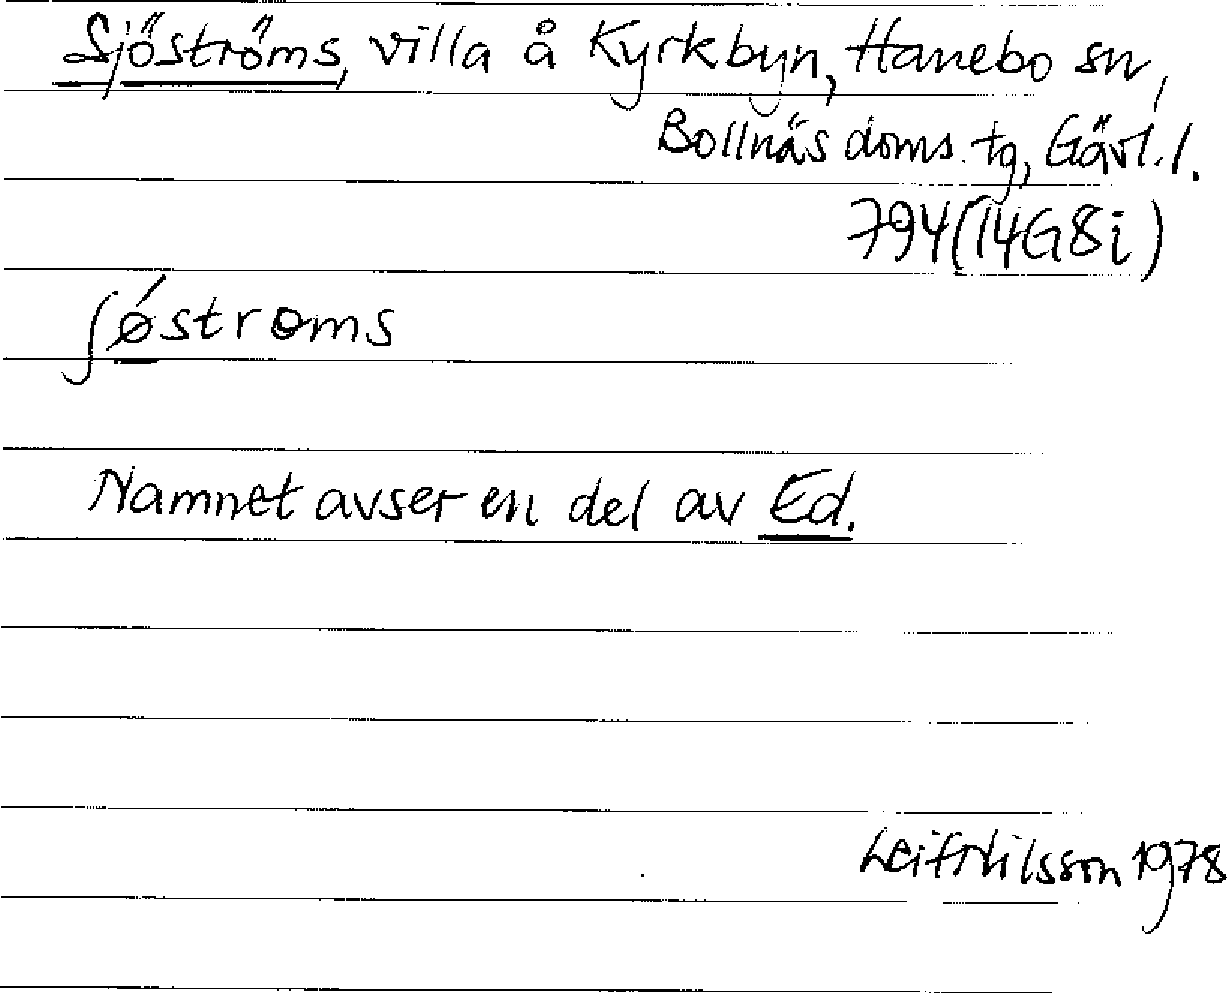 Sjöströms, villa å Kyrkbyn, Hanebo sn,
Bollnäs doms. tg, Gävl. l.
794 (14G8i)
ʃǿstroms
Namnet avser en del av Ed.
Leif Nilsson 1978